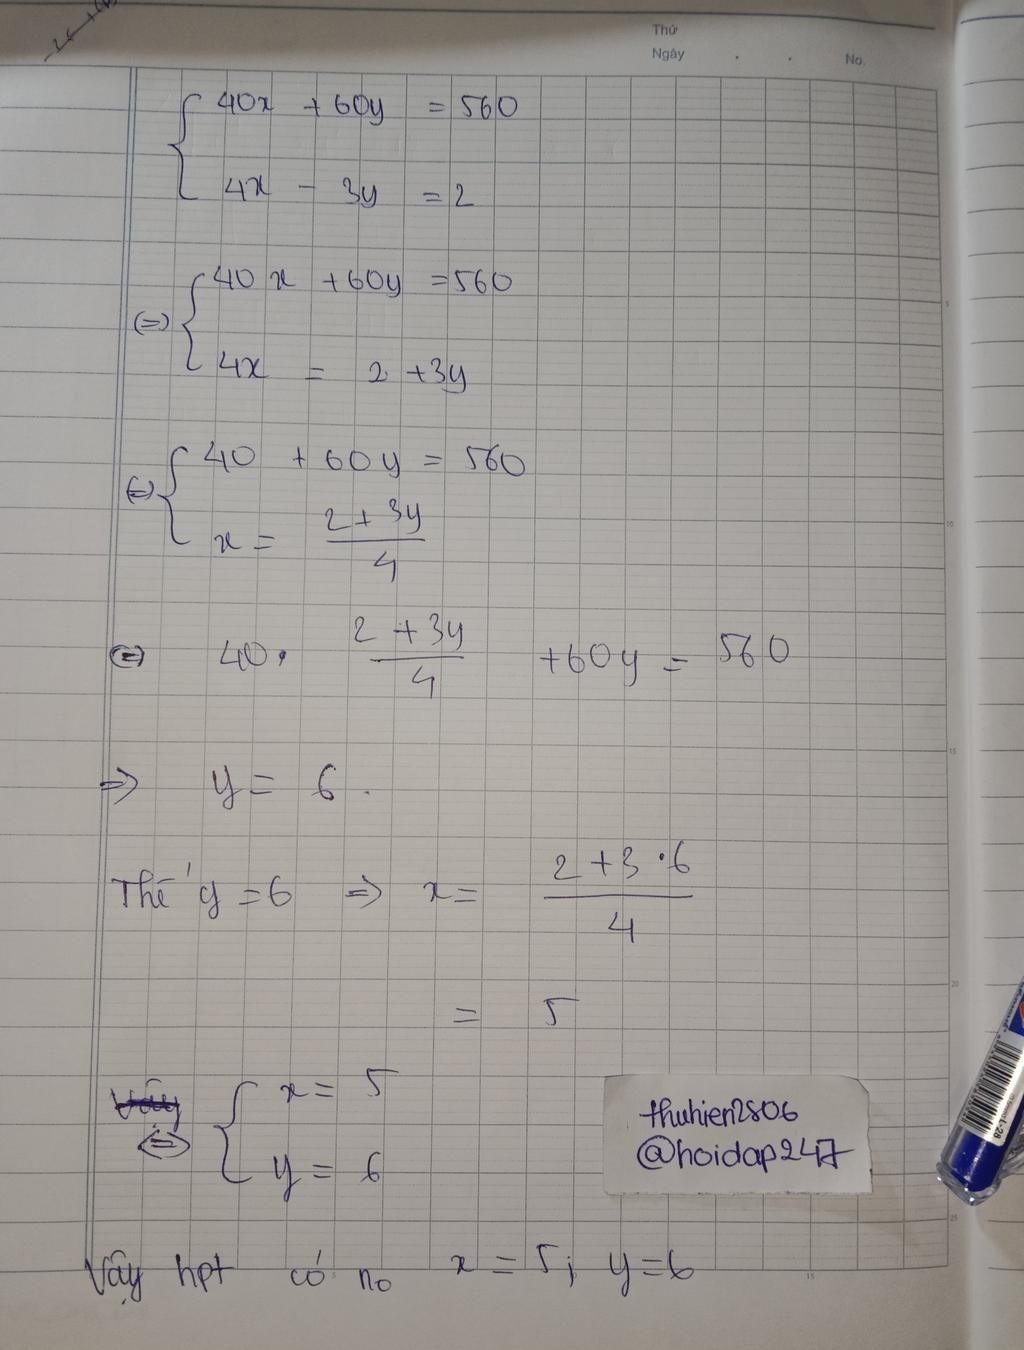 Thứ
Ngày . . No.
40x + 60y = 560
4x - 3y = 2
(=) 40x + 60y = 560
4x = 2 + 3y
(=) 40 + 60y = 560
x = 2 + 3y / 4
(=) 40. 2 + 3y / 4 + 60y = 560
=> y = 6.
Thế y = 6 => x = 2 + 3.6 / 4
= 5
Vậy
(=) x = 5
y = 6
thuhien2806
@hoidap247
Vậy hpt có no x = 5; y = 6
5
10
15
20
25
5
15